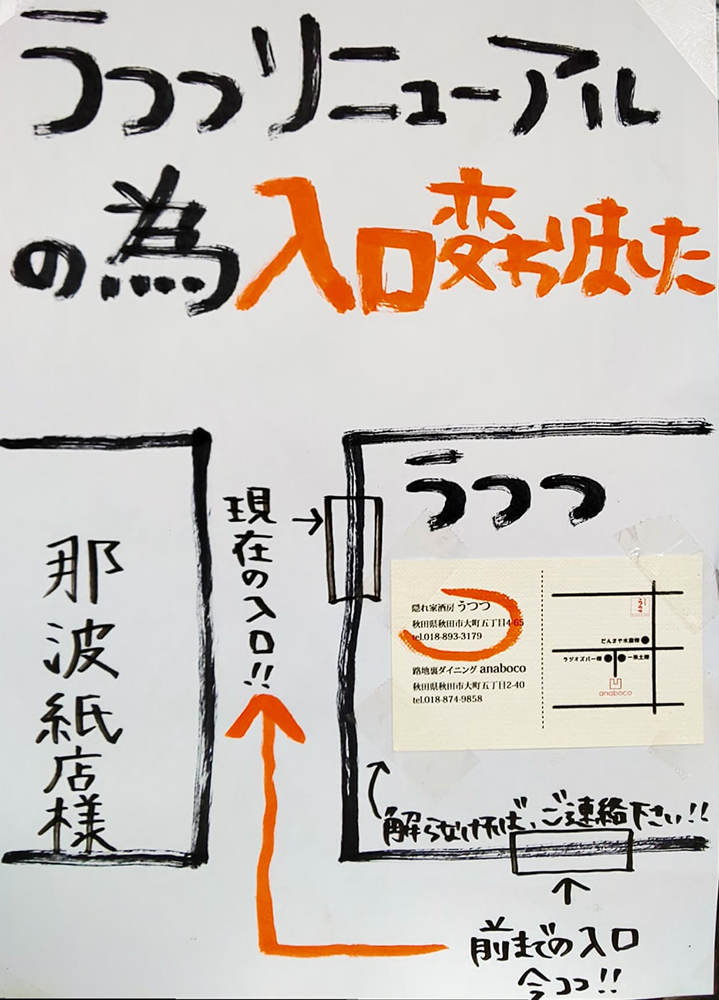 うつつリニューアル
の為入口変わりました
うつつ
現在の入口!!
那波紙店様
隠れ家酒房 うつつ
秋田県秋田市大町五丁目4-65
tel.018-893-3179
路地裏ダイニング anaboco
秋田県秋田市大町五丁目2-40
tel.018-874-9858
どんまや水産様
ラヂオズバー様
一秋土様
anaboco
解らなければ、ご連絡下さい!!
前までの入口
今ココ!!